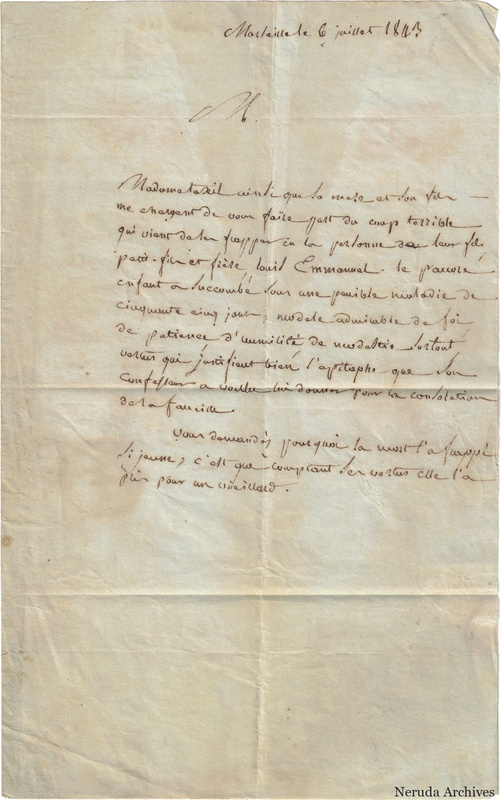 Marseille le 6 juillet 1843
M.
Madame ainsi que sa mere et son fils
me chargent de vous faire part du coup terrible
qui vient de les frapper en la personne de leur fils
petit-fils et frère, Louis Emmanuel. le pauvre
enfant a succombé sous une penible maladie de
cinquante cinq jours; modele admirable de foi
de patience d'humilité de modestie surtout
vertus qui justifient bien l'épitaphe que son
confesseur a voulu lui donner pour la consolation
de la famille.
Vous demandés pourquoi la mort l'a frappé
si jeune; c'est que comptant ses vertus elle l'a
pris pour un vieillard.
Neruda Archives